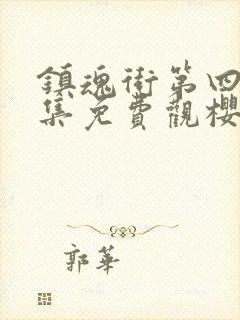 鎮魂街第四
集免費觀櫻
郭華